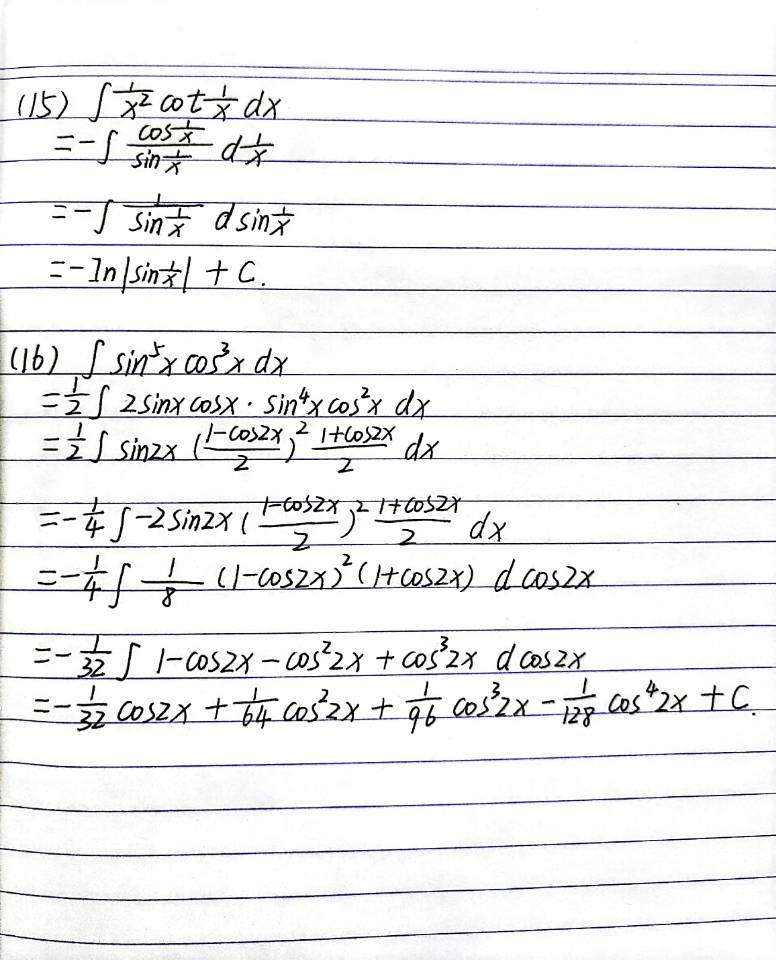 (15) ∫ 1/x² cot 1/x dx
= -∫ (cos 1/x)/(sin 1/x) d 1/x
= -∫ 1/(sin 1/x) d sin 1/x
= -ln|sin 1/x| + C.
(16) ∫ sin⁵x cos³x dx
= 1/2 ∫ 2sinx cosx · sin⁴x cos²x dx
= 1/2 ∫ sin2x ((1-cos2x)/2)² (1+cos2x)/2 dx
= -1/4 ∫ -2sin2x ((1-cos2x)/2)² (1+cos2x)/2 dx
= -1/4 ∫ 1/8 (1-cos2x)² (1+cos2x) d cos2x
= -1/32 ∫ 1-cos2x-cos²2x+cos³2x d cos2x
= -1/32 cos2x + 1/64 cos²2x + 1/96 cos³2x - 1/128 cos⁴2x + C.